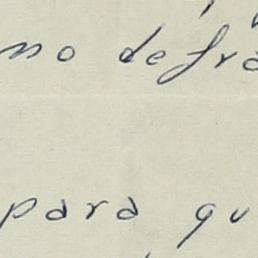 mo defra
para qu